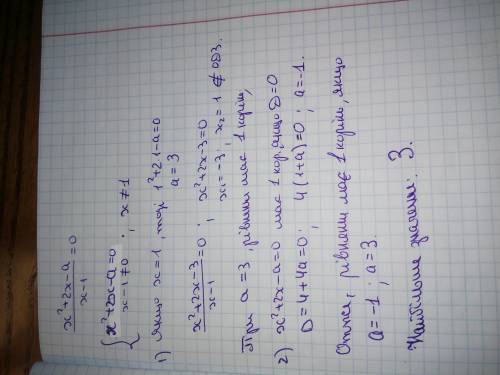 x²+2x-a / x-1 = 0
{ x²+2x-a=0 ; x-1≠0 ; x≠1
1) Якщо x=1, тоді 1²+2·1-a=0
a=3
x²+2x-3 / x-1 = 0 ; x²+2x-3=0
x₁=-3 ; x₂=1 ∉ ОДЗ.
При a=3, рівняння має 1 корінь,
2) x²+2x-a=0 має 1 кор. якщо D=0
D=4+4a=0 ; 4(1+a)=0 ; a=-1.
Отже, рівняння має 1 корінь, якщо
a=-1 ; a=3.
Найбільше значення: 3.